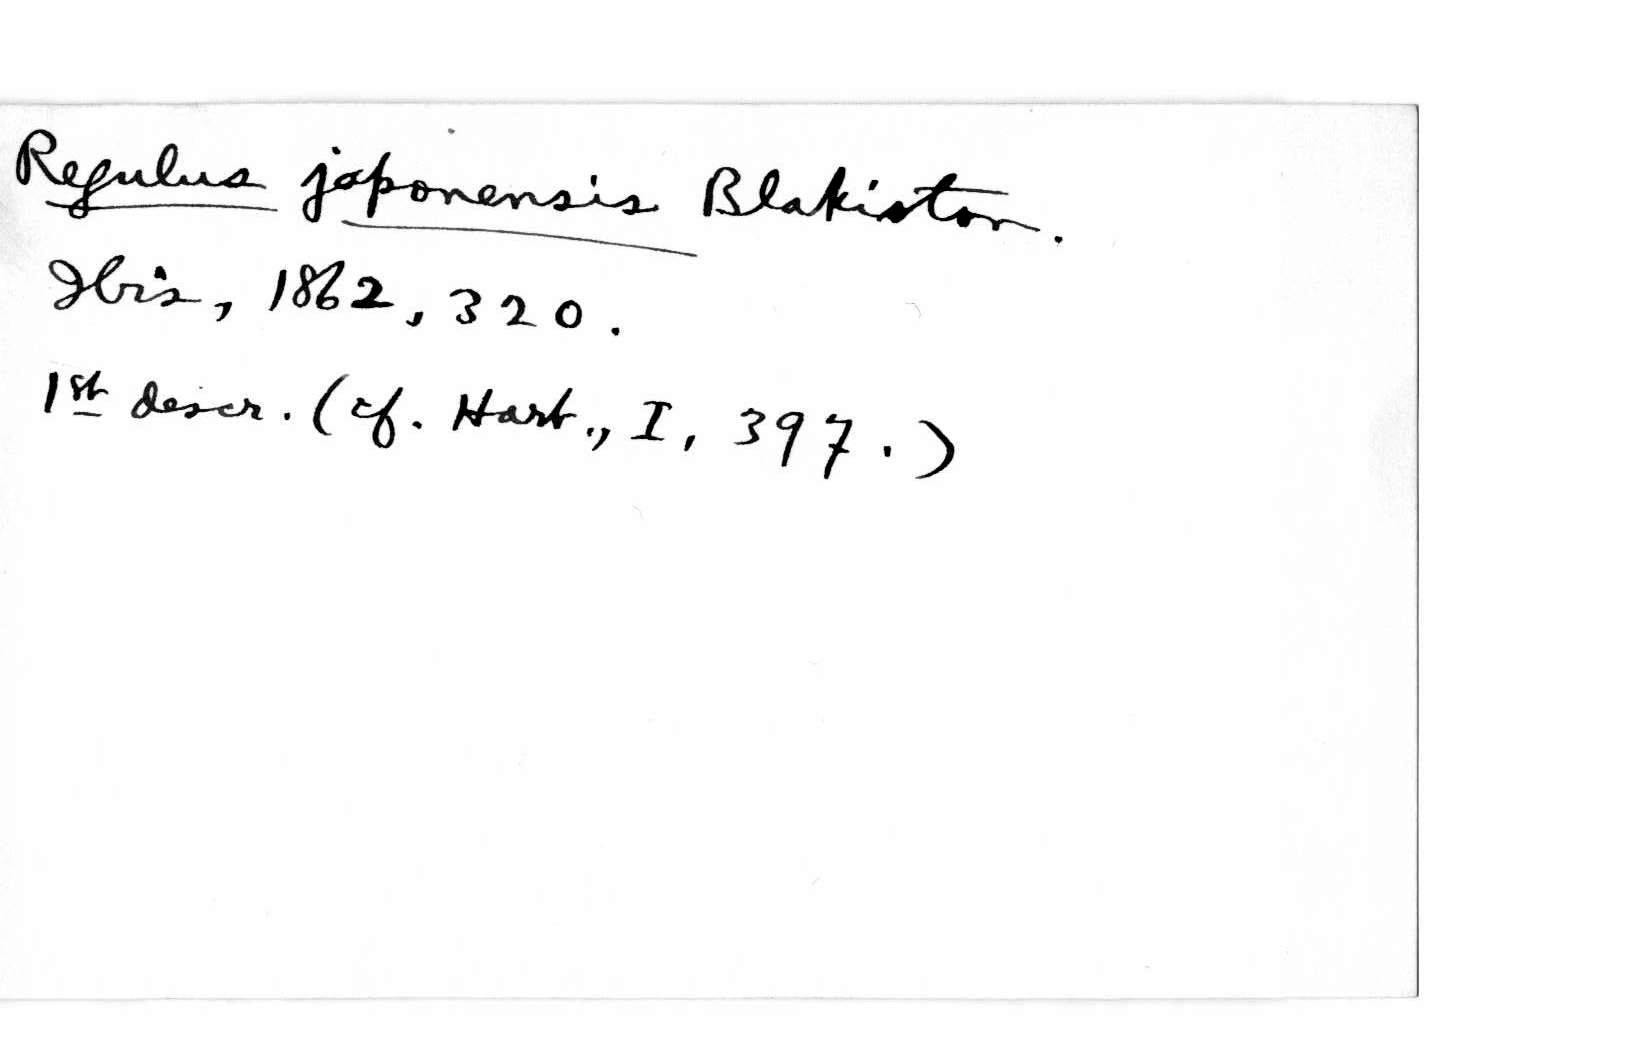 Regulus japonensis Blakiston.
Ibis, 1862, 320.
1st descr. (cf. Hart., I, 397.)